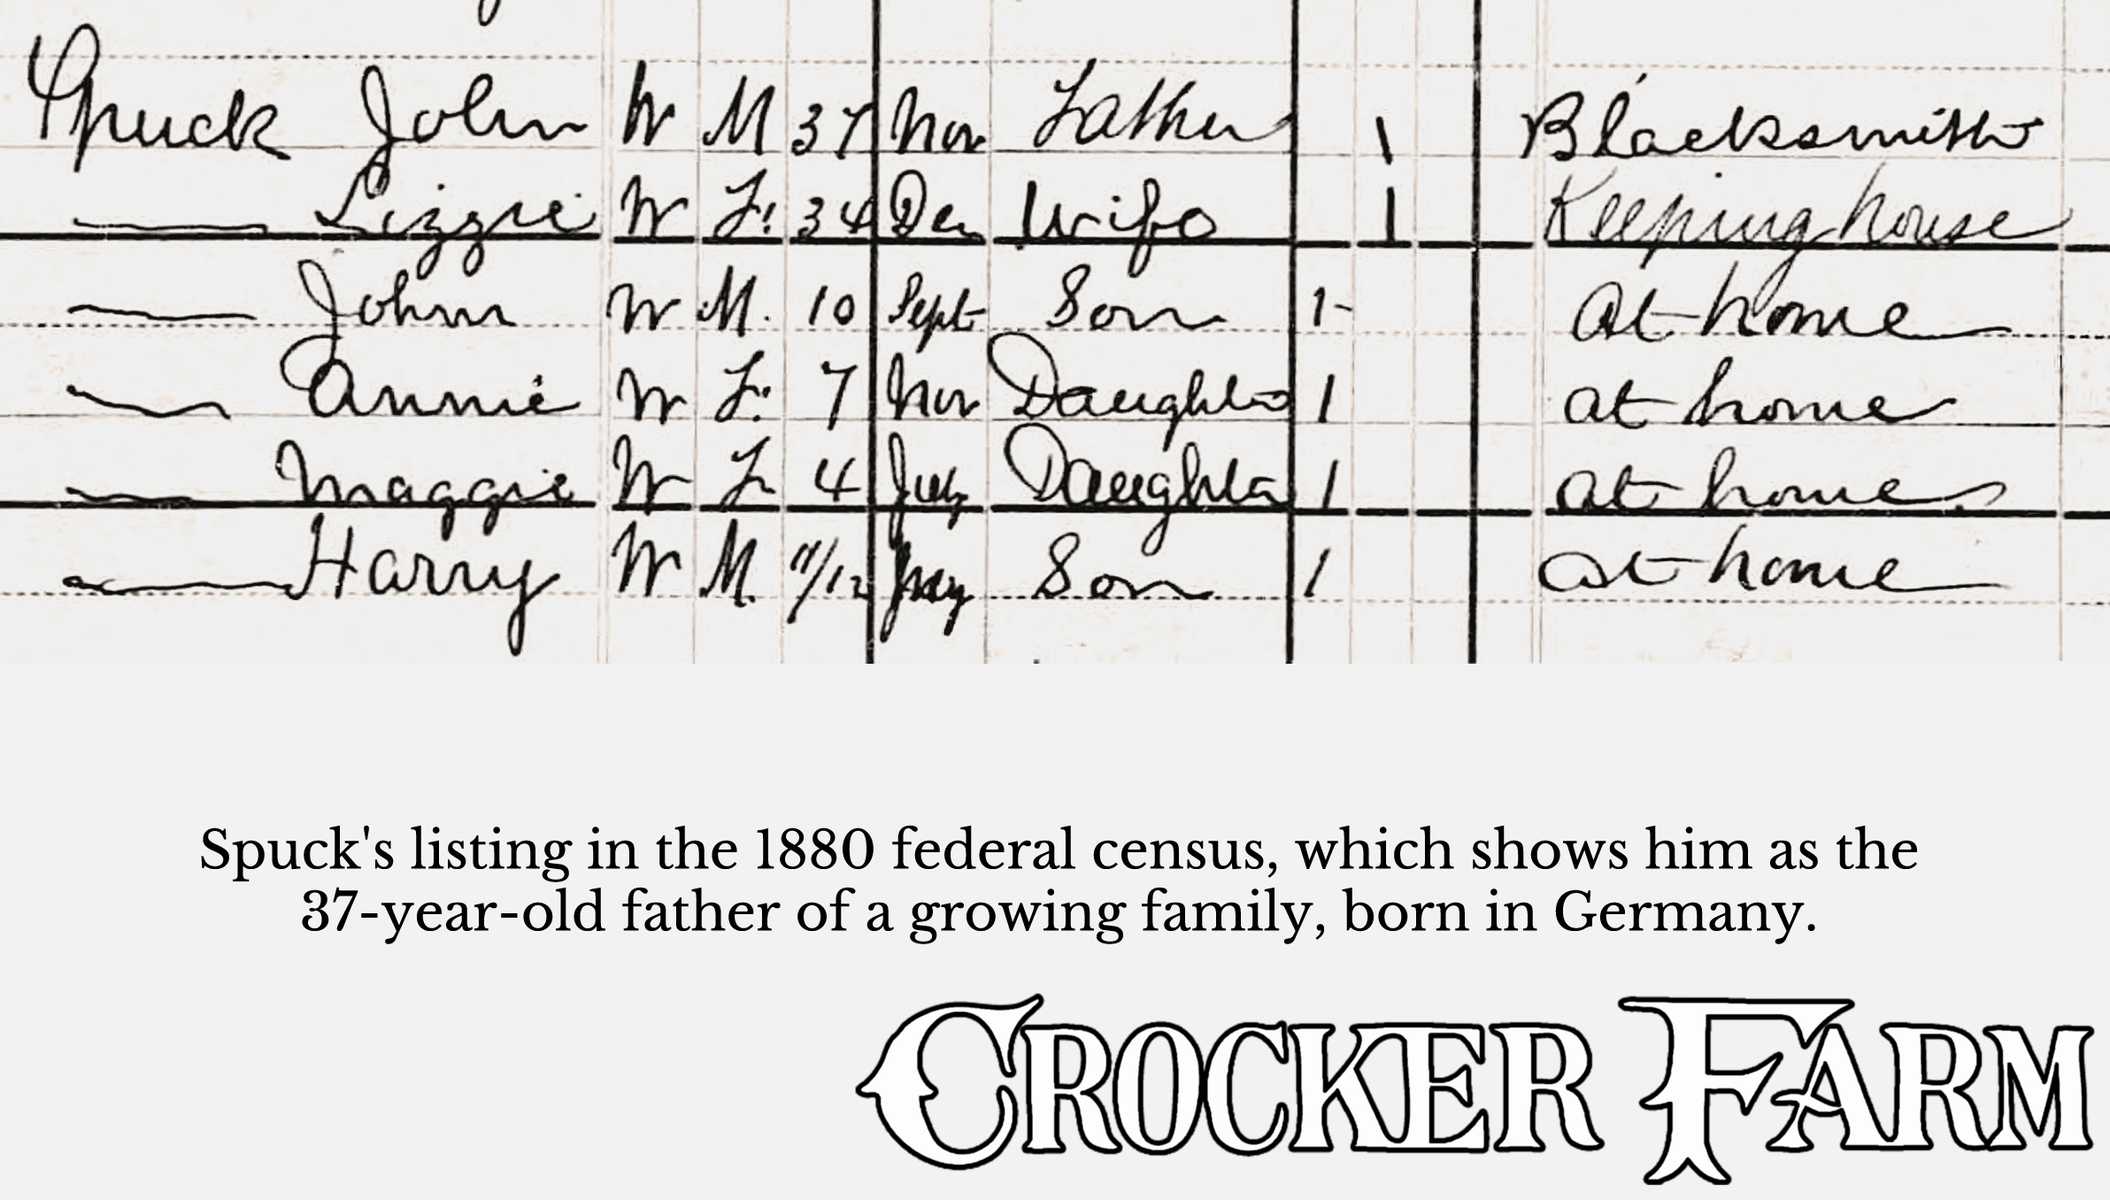 Spuck John W M 37 Nov Father 1 Blacksmith
Lizzie W F. 34 Dec Wife 1 Keeping house
John W M. 10 Sept Son 1- At home
Annie W F. 7 Nov Daughter 1 at home
Maggie W F 4 July Daughter 1 at home
Harry W M. /12 Son 1 at home
Spuck's listing in the 1880 federal census, which shows him as the
37-year-old father of a growing family, born in Germany.
CROCKER FARM